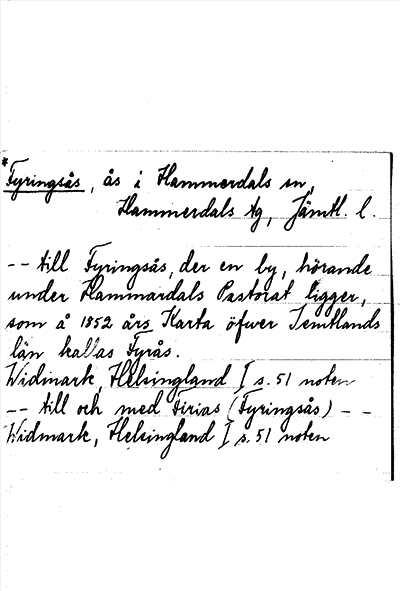 *Fyringsås, ås i Hammerdals sn,
Hammerdals tg, Jämtl. l.
-- till Fyringsås, der en by, hörande
under Hammardals Pastorat ligger,
som å 1852 års Karta öfwer Jemtlands
län kallas Fyrås.
Widmark, Helsingland I s. 51 noten
-- till och med Firias (Fyringsås) --
Widmark, Helsingland I s. 51 noten